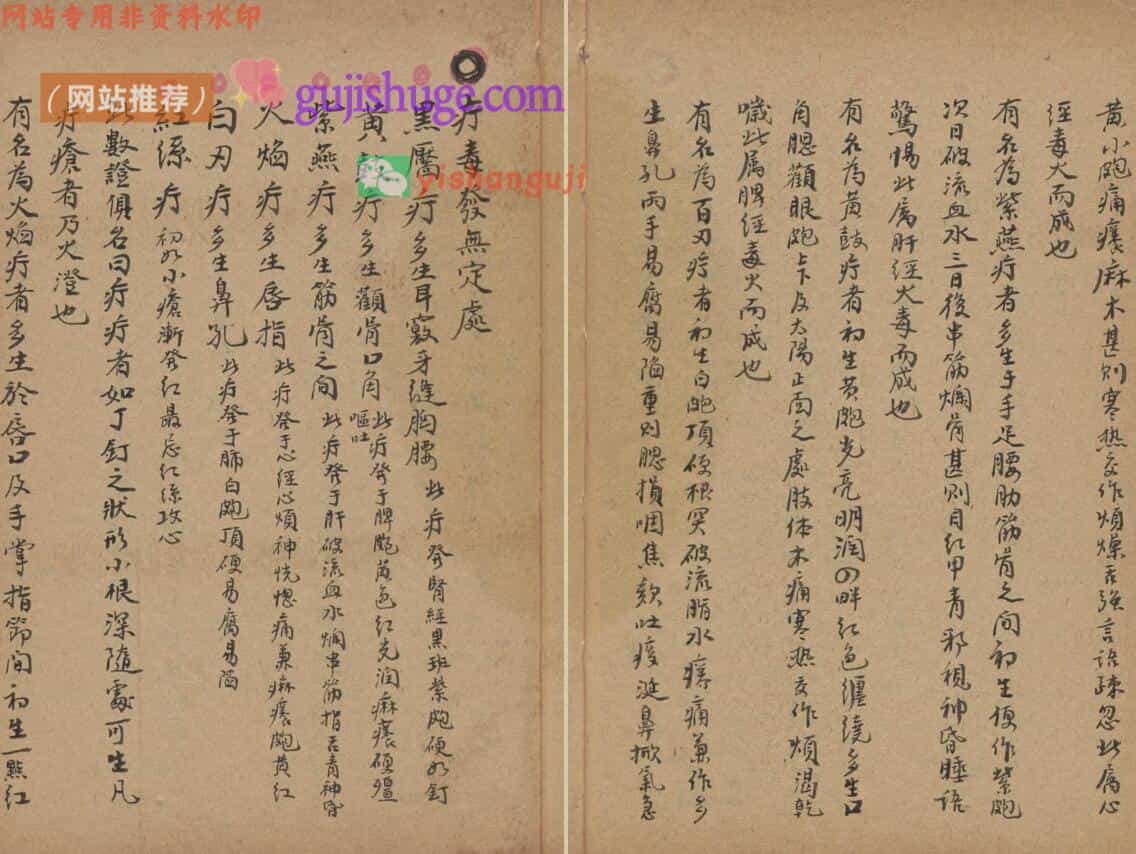 网站专用非资料水印
（网站推荐）
gujishuge.com
yishanguji
疔毒發無定處
黑靨疔多生耳竅牙縫胸腰 此疔發腎經黑班紫皰硬如釘
黃鼓疔多生顴骨口角 此疔發于脾皰黃色紅光潤麻癢硬殭
嘔吐
紫燕疔多生筋骨之间 此疔發于肝破流血水爛串筋指舌青神昏
火焰疔多生唇指 此疔發于心經心煩神恍惚痛兼麻癢皰黃紅
白刃疔多生鼻孔 此疔發于肺白皰頂硬易腐易陷
紅絲疔 初如小瘡漸發紅最忌紅絲攻心
此數證俱名曰疔疔者如丁釘之狀形小根深隨處可生凡
疔瘡者乃火澄也
有名為火焰疔者多生於唇口及手掌指節间初生一點紅
黃小皰痛癢麻木甚則寒熱交作煩燥舌強言語疎忽此屬心
經毒火而成也
有名為紫燕疔者多生于手足腰肋筋骨之间初生便作紫皰
次日破流血水三日後串筋爛骨甚則目紅甲青邪視神昏睡語
驚惕此屬肝經火毒而成也
有名為黃鼓疔者初生黃皰光亮明潤四畔紅色纏繞多生口
角腮顴眼皰上下及太陽正面之處肢体木痛寒熱交作煩渴乾
噦此属脾經毒火而成也
有名為百刃疔者初生白皰頂硬根突破流脂水癢痛兼作多
生鼻孔両手易腐易陷重則腮損咽焦欬吐痰涎鼻掀氣急